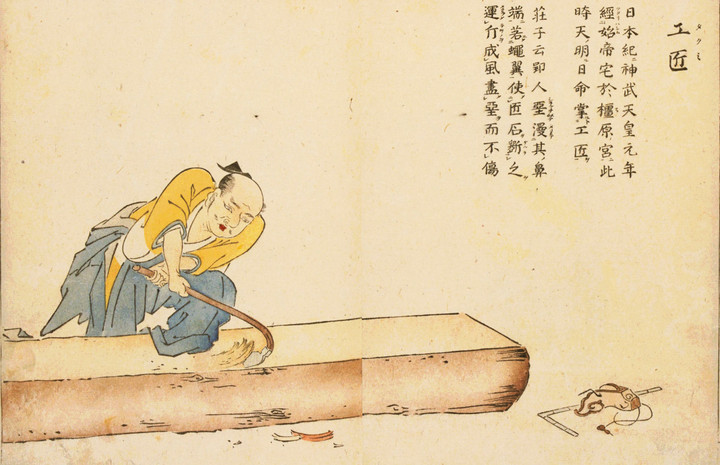 タクミ
工匠
日本紀神武天皇元年
經始帝宅於橿原宮此
時天明日命掌工匠
莊子云郢人堊漫其鼻
端若蠅翼使匠石斲之
運斤成風盡堊而不傷